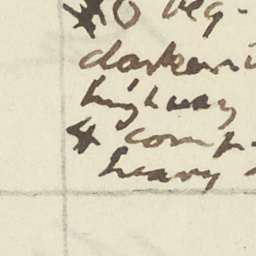 10 beg-
darkeni
highway
& comp.
heavy